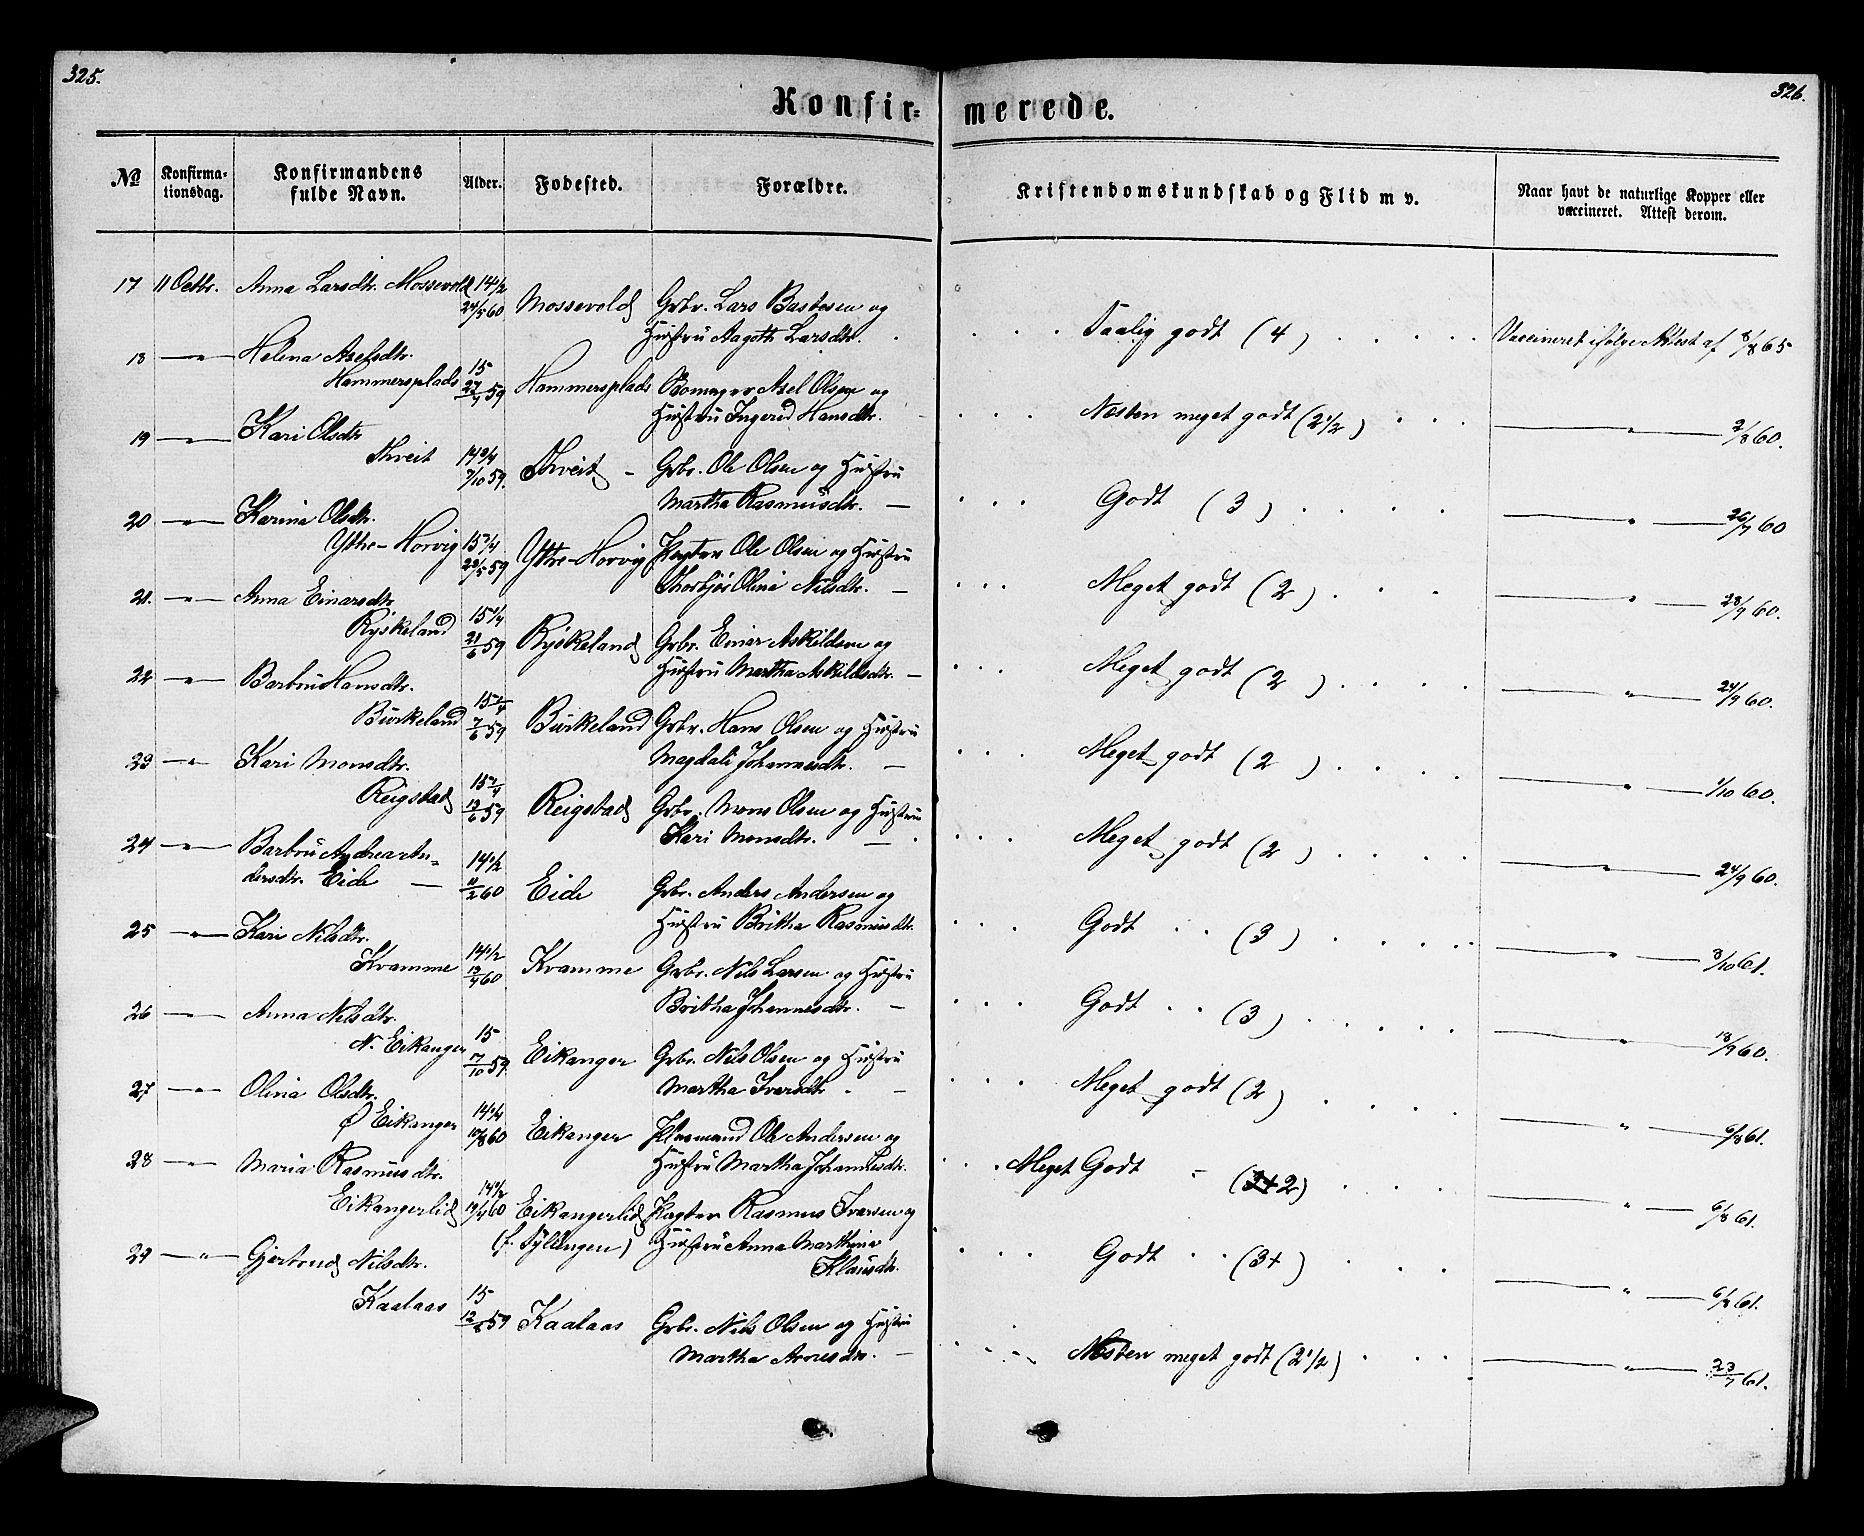 325.
326.
Konfir=
merede.
№
Konfirma-
tionsdag.
Konfirmandens
fulde Navn.
Alder.
Fødested.
Forældre.
Kristendomskundskab og Flid m v.
Naar havt de naturlige Kopper eller
vaccineret. Attest derom.
17 11 Octbr. Anna Larsdtr. Mossevold 14 1/2
24/5 60 Mossevold Grbr. Lars Bastesen og
Hustru Aagoth Larsdtr.
Taalig godt (4) Vaccineret ifølge Attest af 8/8 65
18 —"— Helena Axelsdtr.
Hammersplads 15
27/7 59 Hammersplads Axel Olsen og
Hustru Ingerid Hansdtr.
Næsten meget godt (2 1/2) —"— 2/8 60.
19 —"— Kari Olsdtr
Thveit 14 3/4
7/10 59. Thveit – Grbr. Ole Olsen og Hustru
Martha Rasmusdtr. —
Godt (3) —"— 26/7 60
20 —"— Karina Olsdtr.
Ytre-Horvig 15 1/4
22/5 59 Ytre-Horvig Pagter Ole Olsen og Hustru
Olina Nilsdtr. —
Meget godt (2) —"— 28/9 60.
21. —"— Anna Einarsdtr.
Ryskeland 15 1/4
21/6 59 Ryskeland Grbr. Einar Askildsen og
Hustru Martha Askildsdtr. —
Meget godt (2) —"— 24/9 60.
22 —"— Barbru Hansdtr.
Birkeland 15 1/4
7/6 59 Birkeland Grbr. Hans Olsen og Hustru
Magdali Johannesdtr. —
Meget godt (2) —"— 1/10 60.
23 —"— Kari Monsdtr.
Reigstad 15 1/4
12/6 59 Reigstad Grbr. Mons Olsen og Hustru
Kari Monsdtr. —
Meget godt (2) —"— 24/9 60.
24 —"— Barbru Andrea An=
dersdtr. Eide — 14 1/2
11/2 60 Eide Grbr. Anders Andersen og
Hustru Britha Rasmusdtr.
Godt (3) —"— 3/10 61.
25 —"— Kari Nilsdtr.
Kvamme 14 1/2
12/4 60 Kvamme Grbr. Nils Larsen og Hustru
Britha Johannesdtr. —
Godt (3) —"— 18/9 60.
26 —"— Anna Nilsdtr.
N. Eikanger 15
7/10 59. Eikanger Grbr. Nils Olsen og Hustru
Martha Iversdtr. —
Meget godt (2) —"— 6/8 61.
27 —"— Olina Olsdtr.
Ø Eikanger 14 1/4
10/8 60 Eikanger Plasmand Ole Andersen og
Hustru Martha Johannesdtr.
Meget Godt – (2) —"— 6/8 61.
28 —"— Maria Rasmusdtr.
Eikangerlid 14 1/2
19/4 60 Eikangerlid Pagter Rasmus Iversen og
(f. Fyllingen) Hustru Anna Marthina
Klausdtr.
Godt (3+) —"— 6/8 61.
29 —"— Gjertrud Nilsdtr.
Kaalaas 15
12/8 59 Kaalaas Grbr. Nils Olsen og Hustru
Martha Arnesdtr. —
Næsten meget godt (2 1/2) —"— 23/7 61.